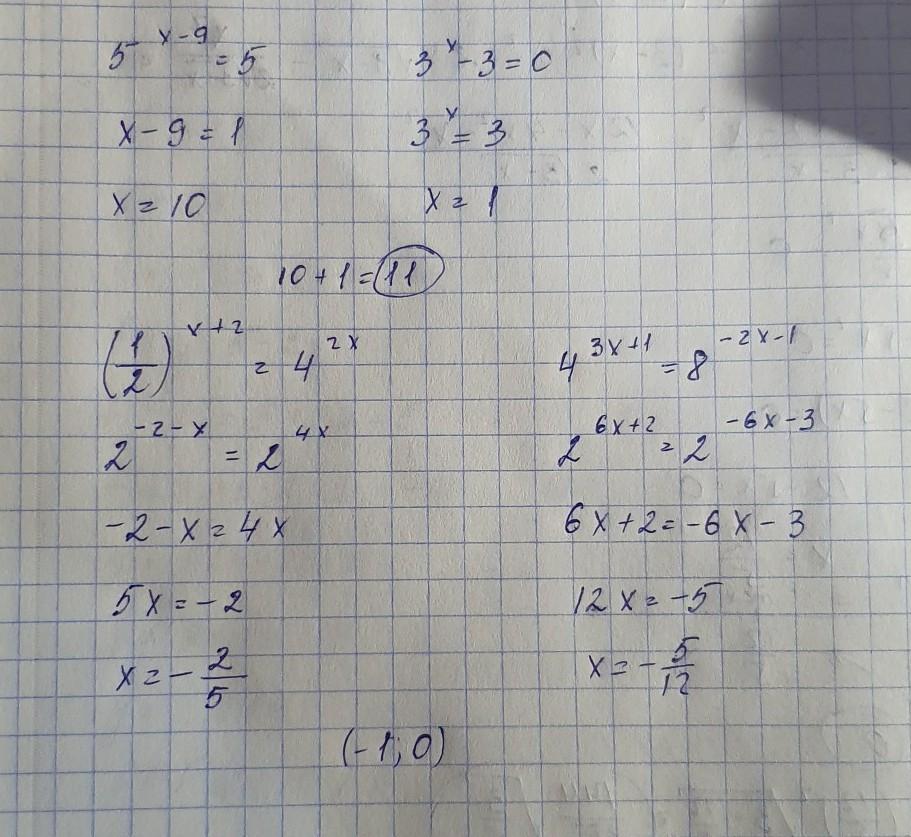 5^{x-9} = 5
x - 9 = 1
x = 10
3^x - 3 = 0
3^x = 3
x = 1
10 + 1 = 11
(1/2)^{x+2} = 4^{2x}
2^{-2-x} = 2^{4x}
-2 - x = 4x
5x = -2
x = -2/5
4^{3x+1} = 8^{-2x-1}
2^{6x+2} = 2^{-6x-3}
6x + 2 = -6x - 3
12x = -5
x = -5/12
(-1; 0)